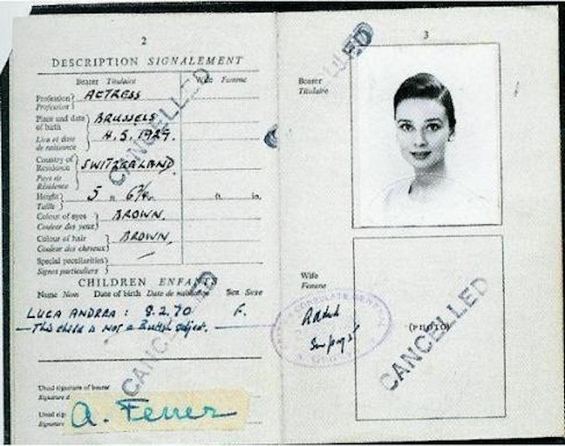 2
DESCRIPTION SIGNALEMENT
Bearer Titulaire
Wife Femme
Profession
Profession
ACTRESS
Place and date of birth
Lieu et date de naissance
BRUSSELS
4.5.1929.
Country of Residence
Pays de Résidence
SWITZERLAND.
Height
Taille
5 ft. in.
Colour of eyes
Couleur des yeux
BROWN.
Colour of hair
Couleur des cheveux
BROWN.
Special peculiarities
Signes particuliers
CANCELLED
CHILDREN ENFANTS
Name Nom Date of birth Date de naissance Sex Sexe
LUCA ANDREA : 8.2.70. F.
This child is not a British subject.
CANCELLED
Usual signature of bearer
3
CANCELLED
Bearer
Titulaire
Wife
Femme
(PHOTO)
CANCELLED